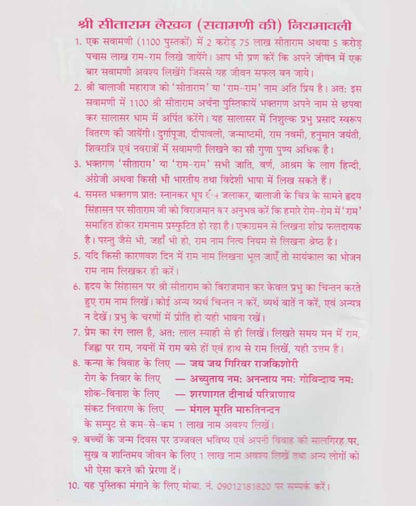 श्री सीताराम लेखन (सवामणी की) नियमावली
1. एक सवामणी (1100 पुस्तकों) में 2 करोड़ 75 लाख सीताराम अथवा 5 करोड़
पचास लाख राम-राम लिखे जायेंगे। आप भी प्रण करें कि अपने जीवन में एक
बार सवामणी अवश्य लिखेंगे जिससे यह जीवन सफल बन जाये।
2. श्री बालाजी महाराज को 'सीताराम' या 'राम-राम' नाम अति प्रिय है। अत: इस
सवामणी में 1100 श्री सीताराम अर्चना पुस्तिकायें भक्तगण अपने नाम से छपवा
कर सालासर धाम में अर्पित करेंगे। यह सालासर में निशुल्क प्रभु प्रसाद स्वरूप
वितरण की जायेंगी। दुर्गापूजा, दीपावली, जन्माष्टमी, राम नवमी, हनुमान जयंती,
शिवरात्रि एवं नवरात्रों में सवामणी लिखने का सौ गुणा पुण्य अधिक है।
3. भक्तगण 'सीताराम' या 'राम-राम' सभी जाति, वर्ण, आश्रम के लाग हिन्दी,
अंग्रेजी अथवा किसी भी भारतीय तथा विदेशी भाषा में लिख सकते हैं।
4. समस्त भक्तगण प्रात: स्नानकर धूप जलाकर, बालाजी के चित्र के सामने हृदय
सिंहासन पर सीताराम जी को विराजमान कर अनुभव करें कि हमारे रोम-रोम में 'राम'
समाहित होकर रामनाम प्रस्फुटित हो रहा है। एकाग्रमन से लिखना शीघ्र फलदायक
है। परन्तु जैसे भी, जहाँ भी हो, राम नाम नित्य नियम से लिखना श्रेष्ठ है।
5. यदि किसी कारणवश दिन में राम नाम लिखना भूल जाएँ तो सायंकाल का भोजन
राम नाम लिखकर ही करें।
6. हृदय के सिंहासन पर श्री सीताराम को विराजमान कर केवल प्रभु का चिन्तन करते
हुए राम नाम लिखें। कोई अन्य व्यर्थ चिन्तन न करें, व्यर्थ वातें न करें, एवं अन्यत्र
न देखें। प्रभु के चरणों में प्रीति हो यही भावना रखें।
7. प्रेम का रंग लाल है, अत: लाल स्याही से ही लिखें। लिखते समय मन में राम,
जिह्वा पर राम, नयनों में राम बसे हों एवं हाथ से राम लिखें, यही उत्तम है।
8. कन्या के विवाह के लिए — जय जय गिरिवर राजकिशोरी
रोग के निवार के लिए — अच्युताय नम: अनन्ताय नम: गोविन्दाय नम:
शोक-विनाश के लिए — शरणागत दीनार्थ परित्राणाय
संकट निवारण के लिए — मंगल मूरति मारुतिनन्दन
के सम्पुट से कम-से-कम 1 लाख नाम अवश्य लिखें।
9. बच्चों के जन्म दिवस पर उज्जवल भविष्य एवं अपनी विवाह की सालगिरह पर,
सुख व शान्तिमय जीवन के लिए 1 लाख नाम अवश्य लिखें तथा अन्य लोगों को
भी ऐसा करने की प्रेरणा दें।
10. यह पुस्तिका मंगाने के लिए मोबा. नं. 09012181820 पर सम्पर्क करें।